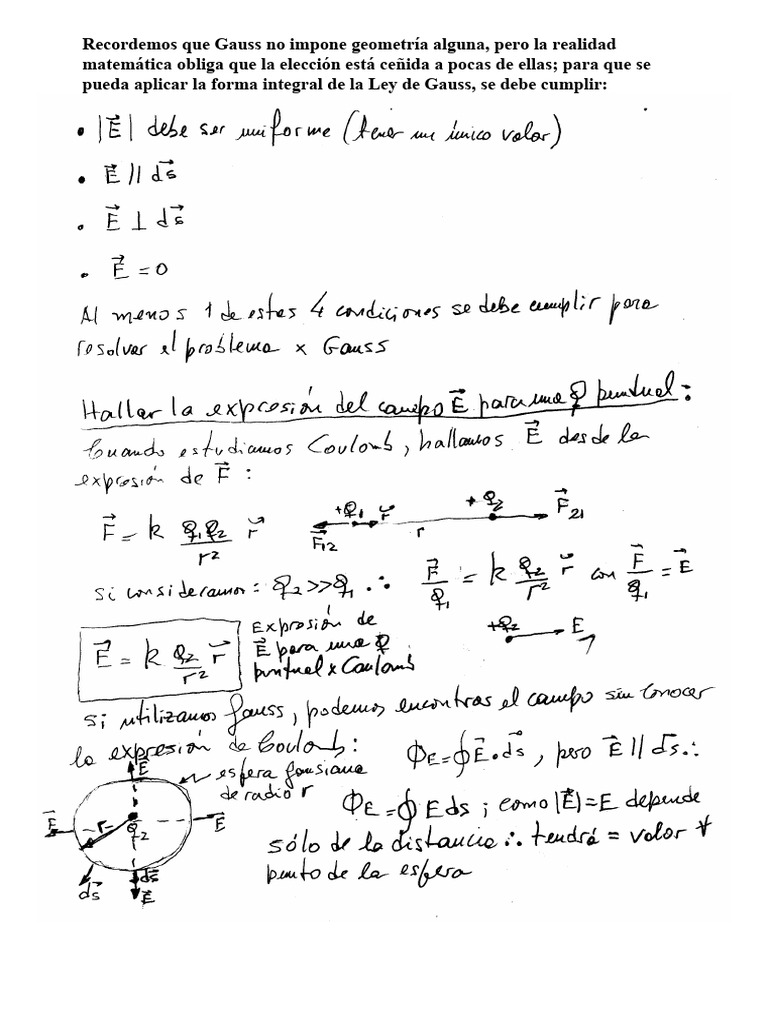 Recordemos que Gauss no impone geometría alguna, pero la realidad
matemática obliga que la elección está ceñida a pocas de ellas; para que se
pueda aplicar la forma integral de la Ley de Gauss, se debe cumplir:
• |E⃗| debe ser uniforme (tener un único valor)
• E⃗ // ds⃗
• E⃗ ⊥ ds⃗
• E⃗ = 0
Al menos 1 de estas 4 condiciones se debe cumplir para
resolver el problema x Gauss
Hallar la expresión del campo E⃗ para una Q puntual:
Cuando estudiamos Coulomb, hallamos E⃗ desde la
expresión de F⃗ :
F⃗ = k Q1Q2/r² r̆
+Q1 r̆ +Q2
F⃗12 r F⃗21
Si consideramos: Q2 >> Q1 ∴ F⃗/Q1 = k Q2/r² r̆ con F⃗/Q1 = E⃗
E⃗ = k Q2/r² r̆
Expresión de
E⃗ para una Q
puntual x Coulomb
+Q2 E
Si utilizamos Gauss, podemos encontras el campo sin conocer
la expresión de Coulomb: ΦE = ∮ E⃗ • ds⃗, pero E⃗ // ds⃗ ∴
esfera gausiana
de radio r
E⃗
E⃗ r Q2 E⃗
ds⃗ ds⃗
E⃗
ΦE = ∮ E ds ; como |E⃗| = E depende
sólo de la distancia ∴ tendrá = valor ∀
punto de la esfera